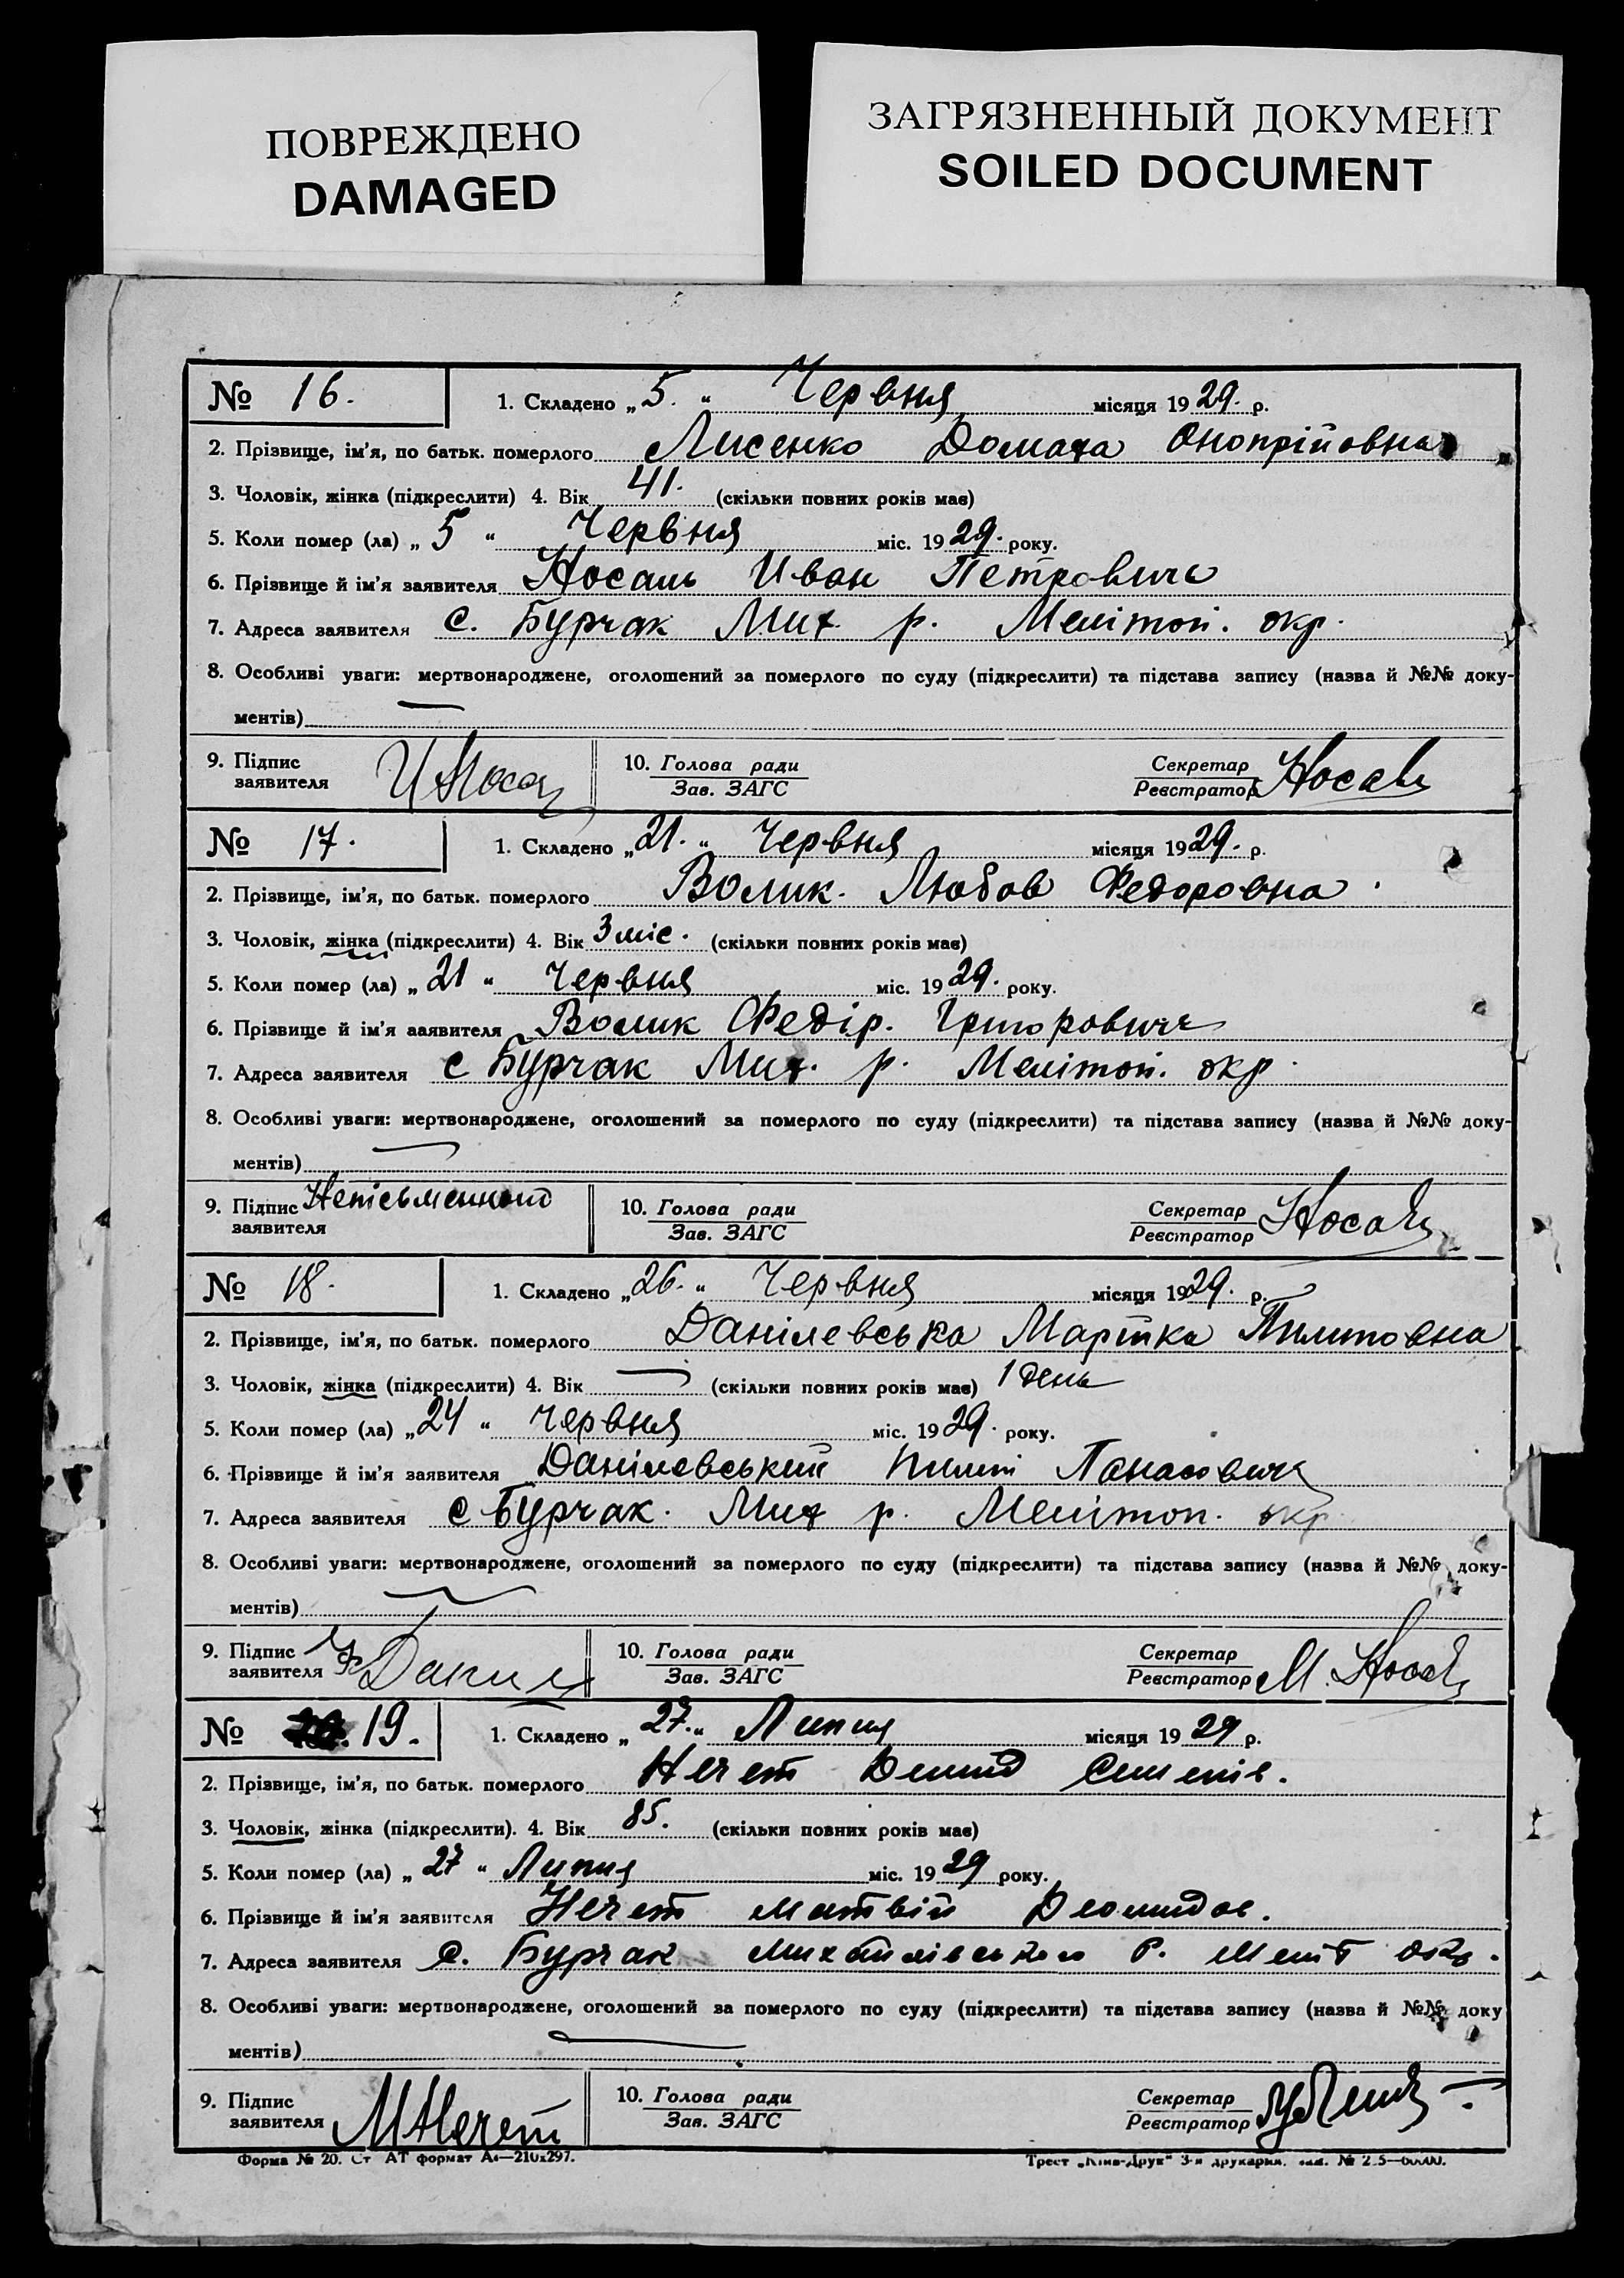 ПОВРЕЖДЕНО
DAMAGED
ЗАГРЯЗНЕННЫЙ ДОКУМЕНТ
SOILED DOCUMENT
№ 16. 1. Складено „ 5. “ Червня місяця 1929. р.
2. Прізвище, ім'я, по батьк. померлого Лисенко Домаха Онопрійовна
3. Чоловік, жінка (підкреслити) 4. Вік 41. (скільки повних років має)
5. Коли помер (ла) „ 5 “ Червня міс. 1929. року.
6. Прізвище й ім'я заявителя Носань Иван Петрович
7. Адреса заявителя с. Бурчак Мих р. Мелітоп. окр.
8. Особливі уваги: мертвонароджене, оголошений за померлого по суду (підкреслити) та підстава запису (назва й №№ доку-
ментів)
9. Підпис заявителя И Носа 10. Голова ради Секретар Носа
Зав. ЗАГС Реєстратор
№ 17. 1. Складено „ 21. “ Червня місяця 1929. р.
2. Прізвище, ім'я, по батьк. померлого Волик. Любов Федоровна.
3. Чоловік, жінка (підкреслити) 4. Вік 3 міс. (скільки повних років має)
5. Коли помер (ла) „ 21 “ Червня міс. 1929. року.
6. Прізвище й ім'я заявителя Волик Федір. Григорович
7. Адреса заявителя с Бурчак Мих. р. Мелітоп. окр.
8. Особливі уваги: мертвонароджене, оголошений за померлого по суду (підкреслити) та підстава запису (назва й №№ доку-
ментів)
9. Підпис заявителя Неписьменный 10. Голова ради Секретар Носа
Зав. ЗАГС Реєстратор
№ 18. 1. Складено „ 26. “ Червня місяця 1929. р.
2. Прізвище, ім'я, по батьк. померлого Данілевська Марійка Пилиповна
3. Чоловік, жінка (підкреслити) 4. Вік — (скільки повних років має) 1 день
5. Коли помер (ла) „ 24 “ червня міс. 1929. року.
6. Прізвище й ім'я заявителя Данілевський Пилип Панасович
7. Адреса заявителя с Бурчак. Мих р. Мелітоп. окр
8. Особливі уваги: мертвонароджене, оголошений за померлого по суду (підкреслити) та підстава запису (назва й №№ доку-
ментів)
9. Підпис заявителя Данил 10. Голова ради Секретар М. Носа
Зав. ЗАГС Реєстратор
№ 19. 1. Складено „ 27. “ Липня місяця 1929 р.
2. Прізвище, ім'я, по батьк. померлого Нечет Демид Семенів.
3. Чоловік, жінка (підкреслити). 4. Вік 85. (скільки повних років має)
5. Коли помер (ла) „ 27 “ Липня міс. 1929 року.
6. Прізвище й ім'я заявителя Нечет Матвій Деомидов.
7. Адреса заявителя с. Бурчак Михайлівського Р. Меліт окр.
8. Особливі уваги: мертвонароджене, оголошений за померлого по суду (підкреслити) та підстава запису (назва й №№ доку
ментів)
9. Підпис заявителя М Нечет 10. Голова ради Секретар
Зав. ЗАГС Реєстратор
Форма № 20. Ст АТ формат А4—210х297. Трест „Київ-Друк“ 3-я друкарня.